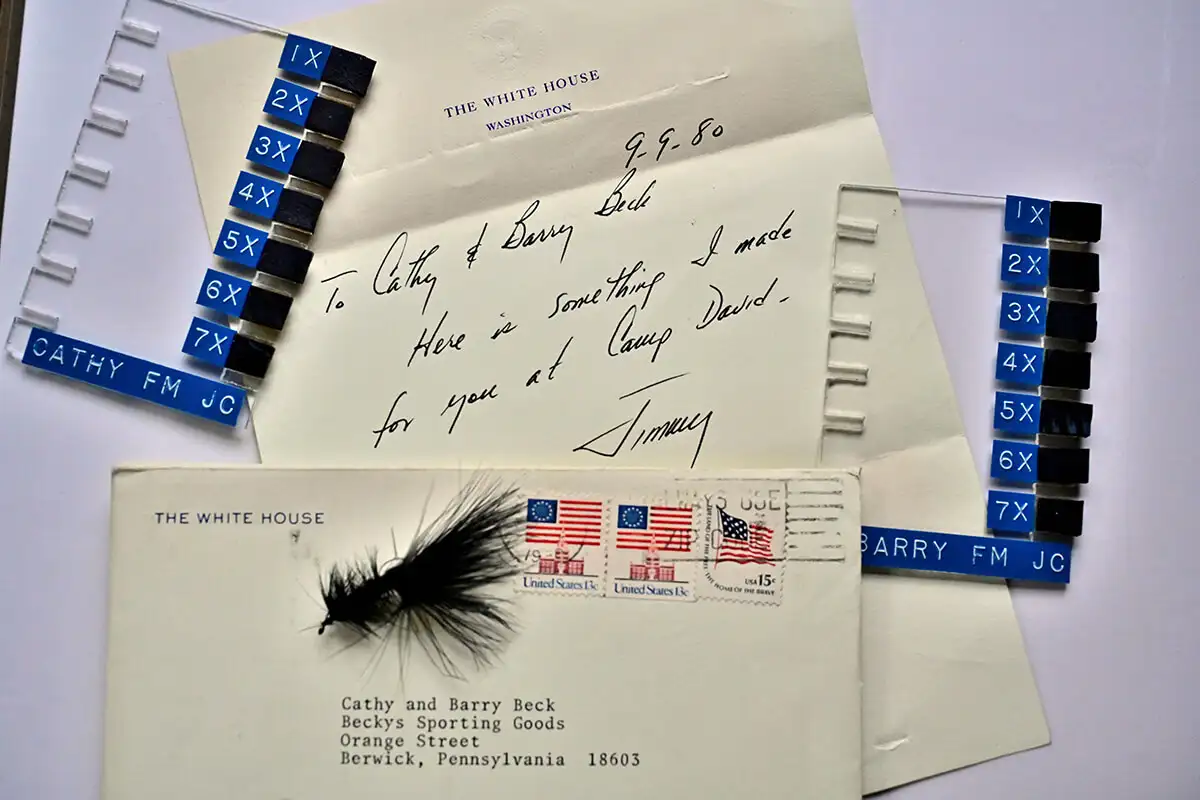 1X
2X
3X
4X
5X
6X
7X
CATHY FM JC
THE WHITE HOUSE
WASHINGTON
9-9-80
To Cathy & Barry Beck
Here is something I made
for you at Camp David-
Jimmy
1X
2X
3X
4X
5X
6X
7X
BARRY FM JC
THE WHITE HOUSE
United States 13c
United States 13c
THE LAND OF THE FREE THE HOME OF THE BRAVE
USA 15c
USE
Cathy and Barry Beck
Beckys Sporting Goods
Orange Street
Berwick, Pennsylvania 18603